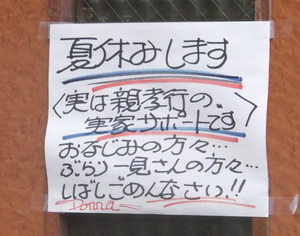 夏休みします
〈実は親孝行の〉
実家サポートです
おなじみの方々…
ぶらり一見さんの方々…
しばしごめんなさい!!
Donna